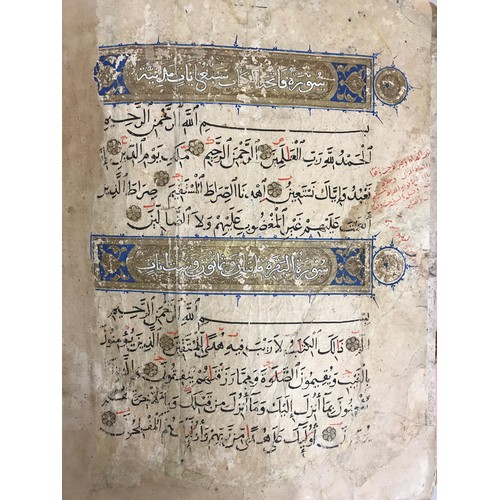 سورة فاتحة الكتاب سبع ايات
بسم الله الرحمن الرحيم
الحمد لله رب العالمين الرحمن الرحيم ملك يوم الدين اياك
نعبد واياك نستعين اهدنا الصراط المستقيم صراط الذين
انعمت عليهم غير المغضوب عليهم ولا الضالين
سورة البقرة مايتان وثمانون وست ايات
بسم الله الرحمن الرحيم
الم ذلك الكتاب لا ريب فيه هدى للمتقين الذين يؤمنون
بالغيب ويقيمون الصلوة ومما رزقناهم ينفقون والذين
يؤمنون بما أنزل إليك وما أنزل من قبلك وبالآخرة هم
يوقنون أولئك على هدى من ربهم وأولئك هم المفلحون